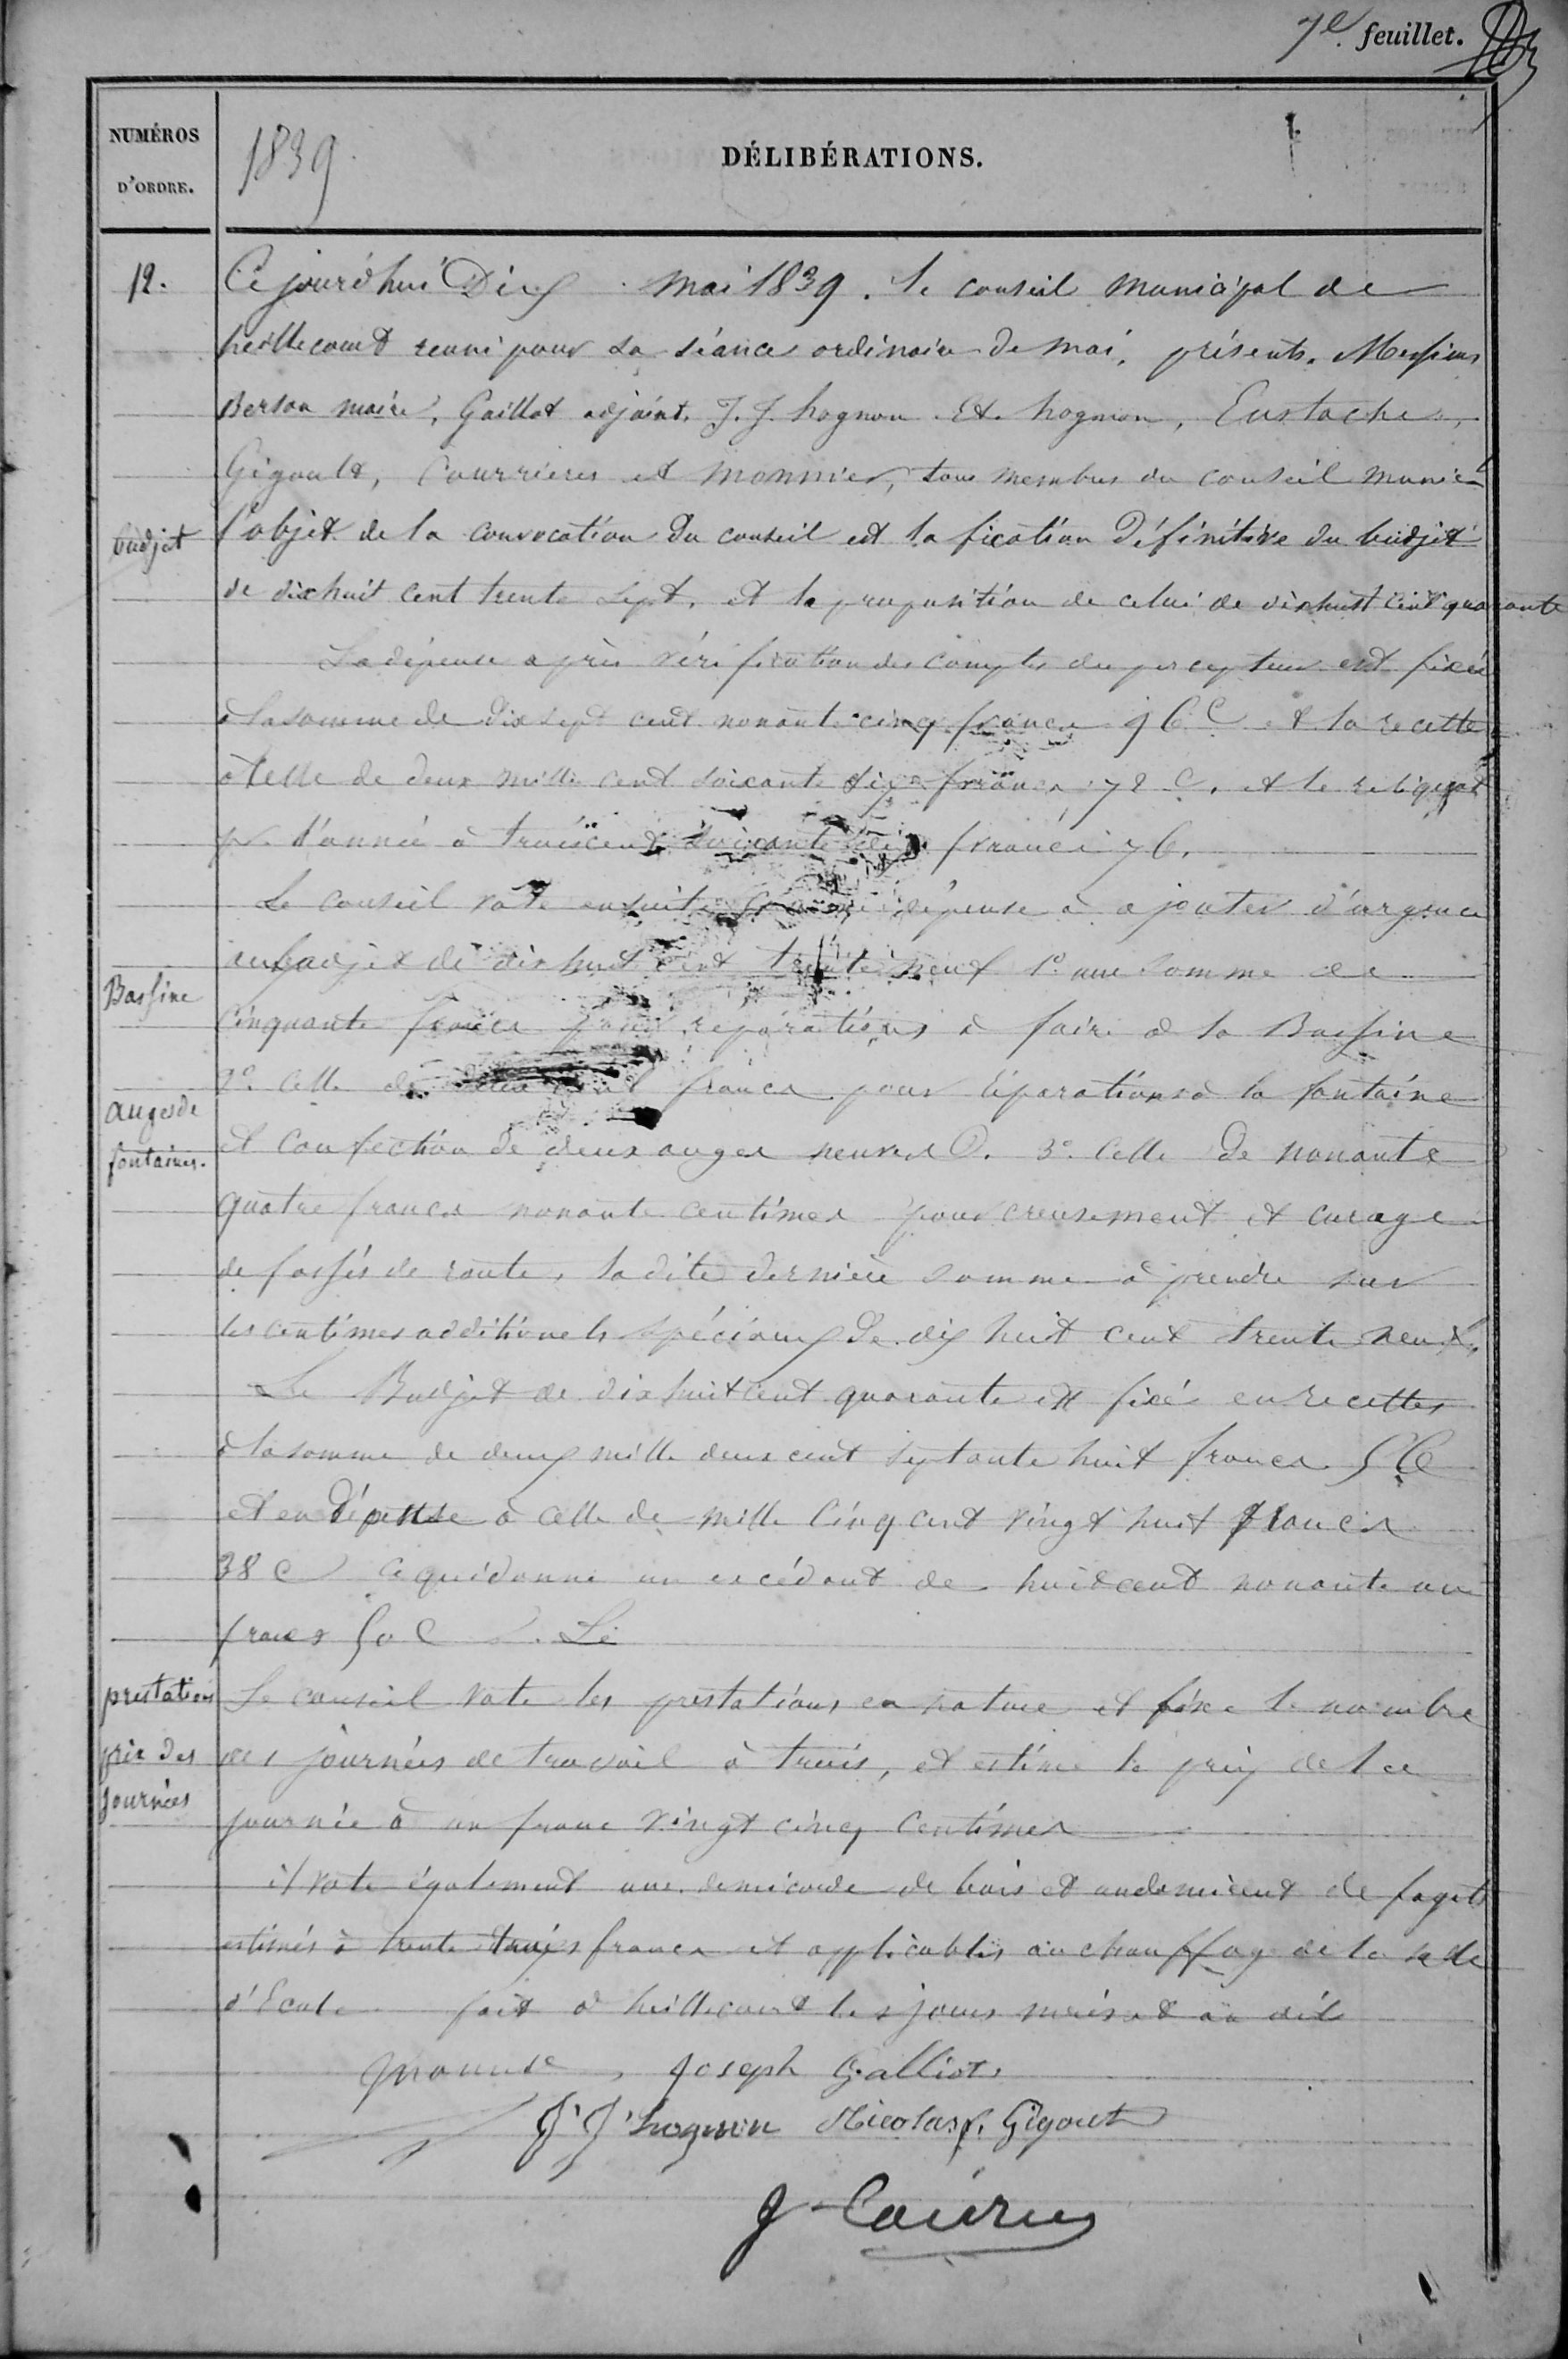 7e. feuillet.
NUMÉROS
D'ORDRE.
1839
DÉLIBÉRATIONS.
12.
Ce jourd'hui Dix mai 1839. le conseil municipal de
heillecourt reuni pour sa séance ordinaire de mai, présents. Messieurs
Berson maire, Gaillot adjoint, J. J. hognon Et. hognon, Eustache,
Gigoult, Courrieres et Monnier, tous membres du conseil munic
budjet
l'objet de la convocation du conseil est la fixation définitive du budjet
de dixhuit cent trente sept, et la proposition de celui de dixhuit cent quarante
La dépense après vérification des comptes du percepteur est fixée
à la somme de dix sept cent nonante cinq francs 96 C et la recette
à celle de deux mille cent soixante francs 72 C. et le reliquat
p. d'année à trois cent soixante francs 76.
Le conseil vote ensuite dépense à ajouter d'urgence
au budjet de dix huit cent trente neuf 1o. une somme de
Bassine
cinquante francs pour réparations à faire à la Bassine
2o. celle de francs pour réparations à la fontaine
auges de
fontaines.
et confection de deux auges neuves. 3o. celle de nonante
quatre francs nonante centimes pour creusement et curage
de fossés de route, la dite dernière somme à prendre sur
les centimes additionels spéciaux de dix huit cent trente neuf,
Le Budjet de dixhuit cent quarante est fixé en recettes
à la somme de deux mille deux cent septante huit francs
et en dépense à celle de mille cinq cent vingt huit francs
38 C ce qui donne un excédant de huit cent nonante un
francs 50 C
prestations
Le conseil vote les prestations en nature et fixe le nombre
prix des
journées
des journées de travail à trois, et estime le prix de la
journée à un franc vingt cinq centimes
il vote également une demi corde de bois et un demi cent de fagots
estimés à trente trois francs et applicables au chauffage de la salle
d'Ecole fait à heillecourt les jours mois et an dit
Joseph Galliot
J J hognon Nicolas f. Gigout